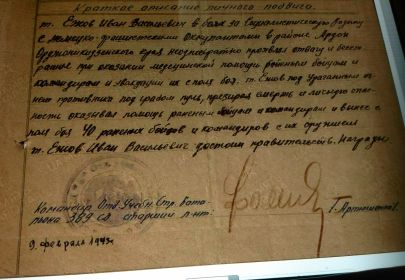 Краткое описание личного подвига.
т. Ежов Иван Васильевич в боях за Социалистическую Родину
с немецко-фашистскими оккупантами в районе Ардон
Орджоникидзевского края неоднократно проявлял отвагу и
при оказании медицинской помощи раненым бойцам и
командирам и эвакуации их с поля боя. т. Ежов под ураганным ог
противника под градом пуль, презирая смерть и личную опас
ность оказывал помощь раненым бойцам и командирам и вынес с
поля боя 40 раненых бойцов и командиров с их оружием
т. Ежов Иван Васильевич достоин правительств. Награды
Командир Отд. Учебн. Стр. Бата
льона 389 сд старший л-нт:
/-Артюшенко/
9 февраль 1943г